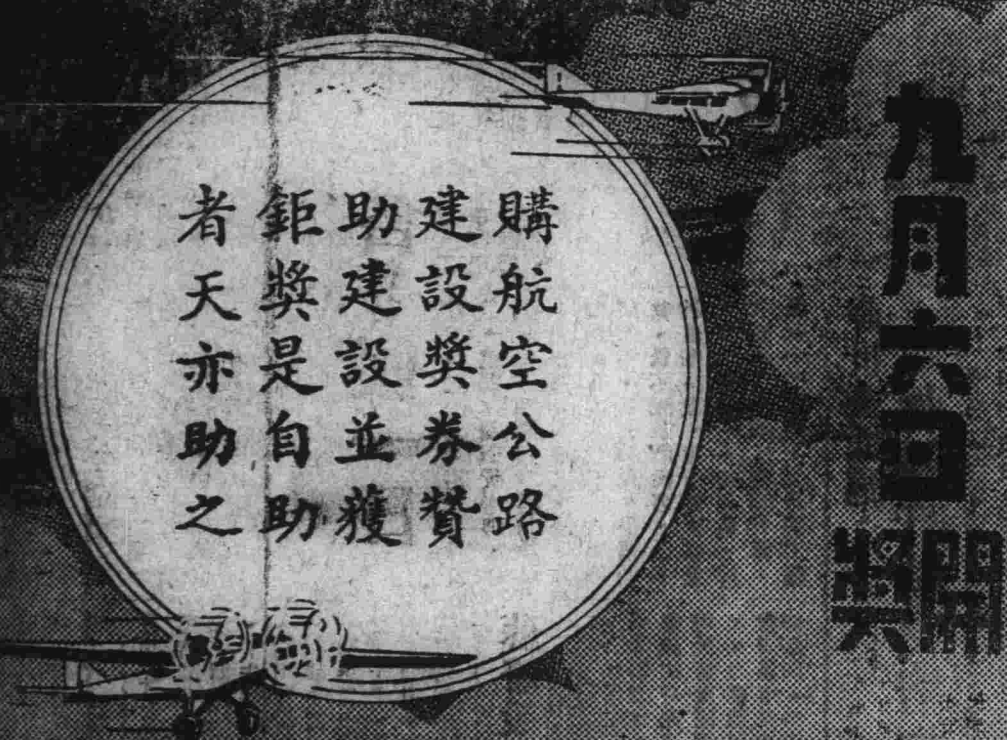 九月六日
開獎
購航空公路
建設獎券贊
助建設並獲
鉅獎是自助
者天亦助之